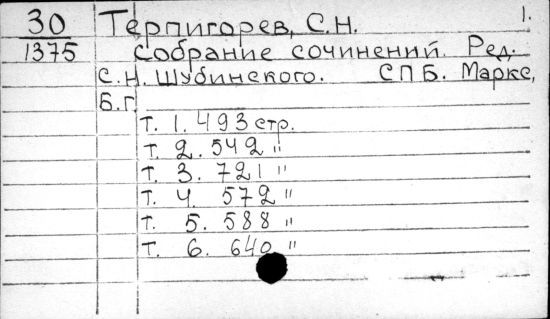 30 Терпигорев, С.Н. 1.
1375 Собрание сочинений. Ред.
С.Н. Шубинского. СПБ. Маркс,
Б.Г.
Т. 1. 493 стр.
Т. 2. 542 "
Т. 3. 721 "
Т. 4. 572 "
Т. 5. 588 "
Т. 6. 640 "